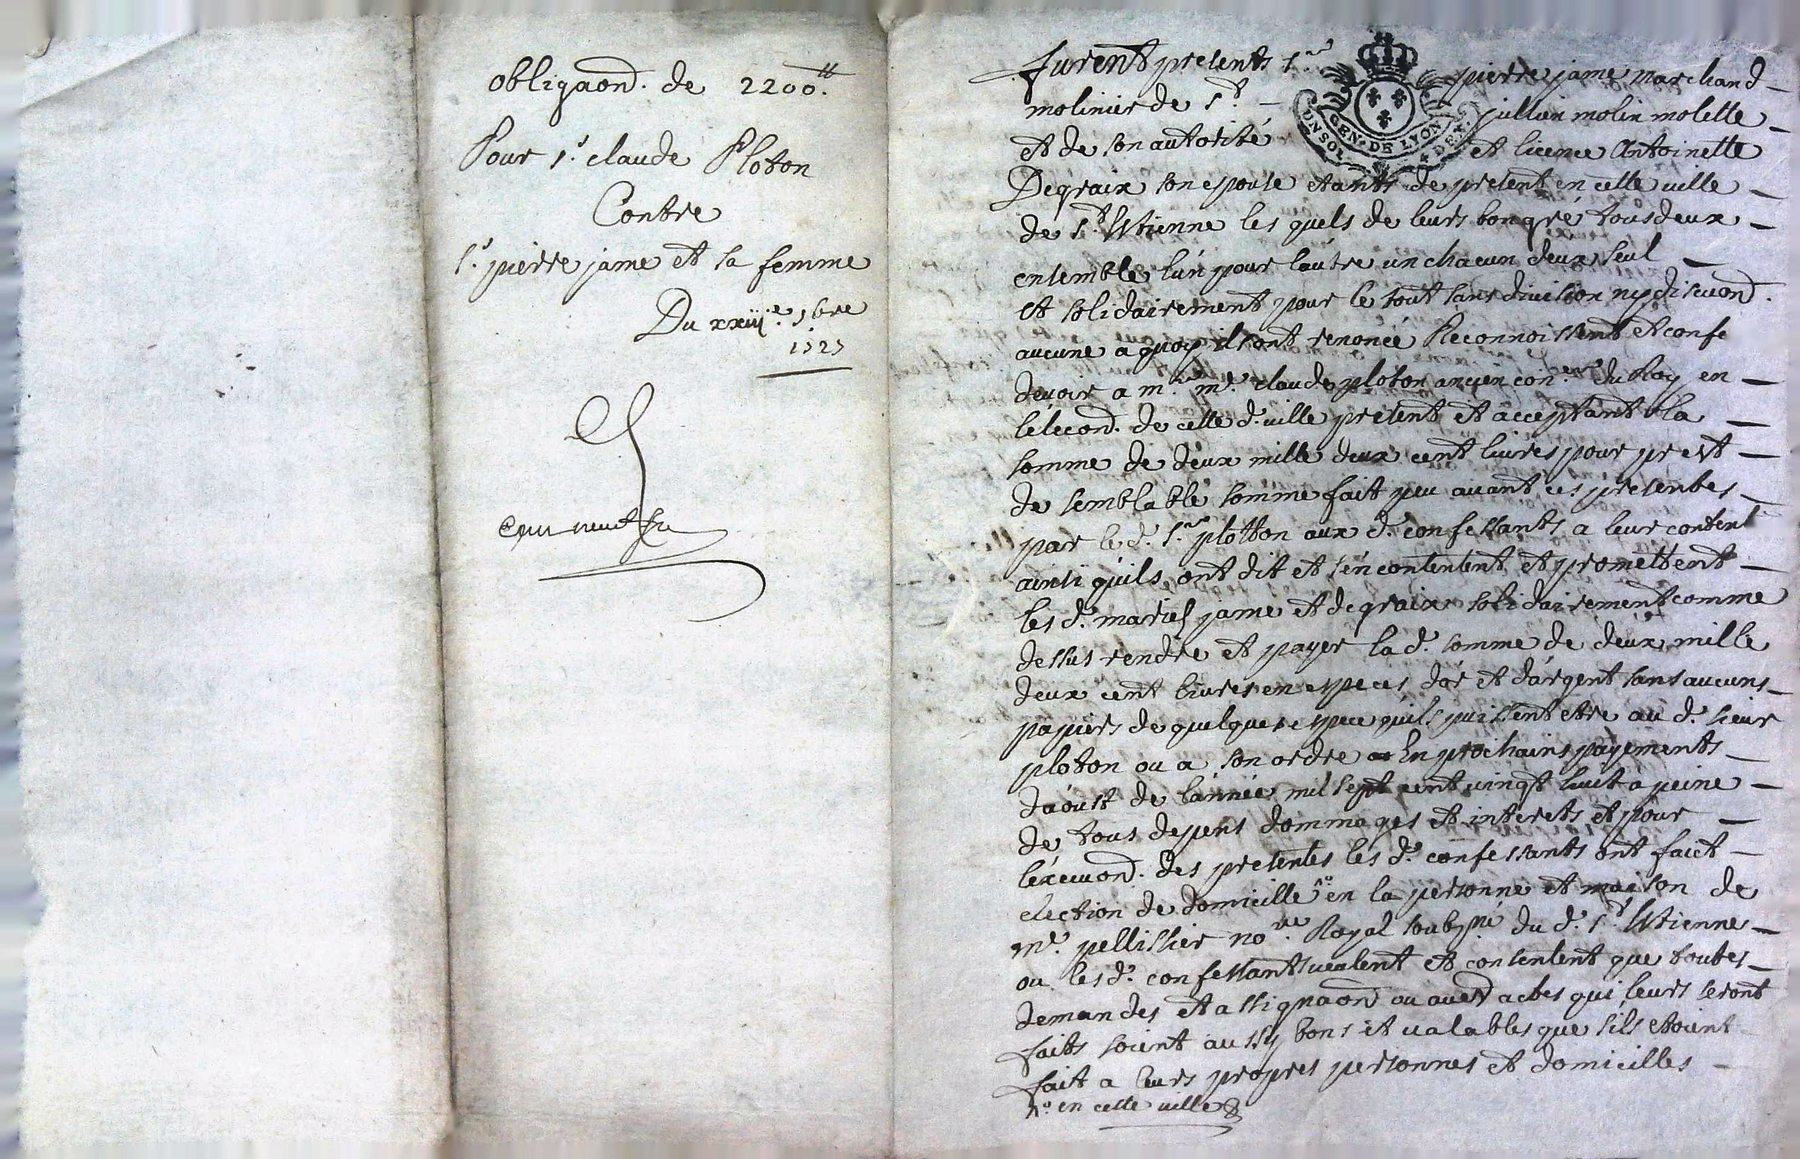 obligaon̄. de 2200ᵗᵗ.
Pour sʳ. claude Ploton
Contre
sʳ. pierre jame et sa femme
Du xxiiiᵉ. 9bre
1727
furent presents sʳ pierre jame marchand
molinier de sᵗ. jullien molin molette
et de son autorité et licence Antoinette
Degraix son epouse etants de present en cette ville
de sᵗ. Etienne les quels de leurs bon gré tous deux
ensemble l'un pour l'autre un chacun deux seul
et solidairement pour le tout sans division ny discuon̄.
aucune a quoy ils ont renoncé Reconnoissent et confe
devoir a mʳ. mᵉ. claude ploton ancien conᵉʳ. du Roy en
l'élecon̄. de cette d. ville present et acceptant la
somme de deux mille deux cent livres pour prest
de semblable somme fait peu avant ces presentes
par le d. sʳ. plotton aux d. confessants a leur content
ainsi quils ont dit et s'en contentent et promettent
les d. mariés jame et degraix solidairement comme
dessus rendre et payer la d. somme de deux mille
deux cent livres en especes d'or et d'argent sans aucuns
papiers de quelque espece quils puissent etre au d. sieur
ploton ou a son ordre En prochains payements
d'aoust de l'année mil sept cent vingt huit a peine
de tous depens dommages et interets et pour
l'execuon̄. des presentes les d. confessants ont faict
election de domicille en la personne et maison de
mᵉ. pellissier noʳᵉ. Royal soubzné du d. sᵗ. Etienne
ou les d. confessants veulent et consentent que toutes
demandes et assignaon̄ ou autres actes qui leurs seront
faits soient aussy bons et valables que sils etoient
fait a leurs propres personnes et domicilles
en cette ville
GEN. DE LYON
UN SOL